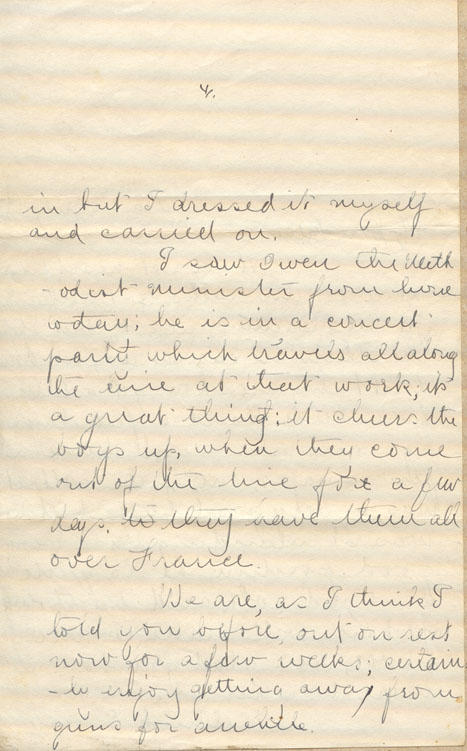 4.
in but I dressed it myself
and carried on.
I saw Owen the Meth
-odist minister from home
today; he is in a concert
party which travels all along
the line at that work; it's
a great thing; it cheers the
boys up, when they come
out of the line for a few
days. they have them all
over France.
We are, as I think I
told you before, out on rest
now for a few weeks; certain
-ly enjoy getting away from
guns for awhile.